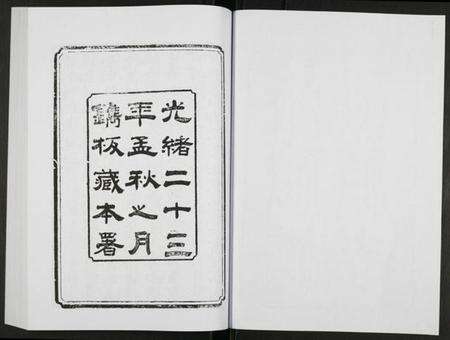 光緒二十三
年孟秋之月
鐫板藏本署